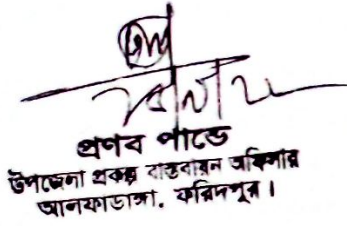 প্রণব পান্ডে
উপজেলা প্রকল্প বাস্তবায়ন অফিসার
আলফাডাঙ্গা, ফরিদপুর।